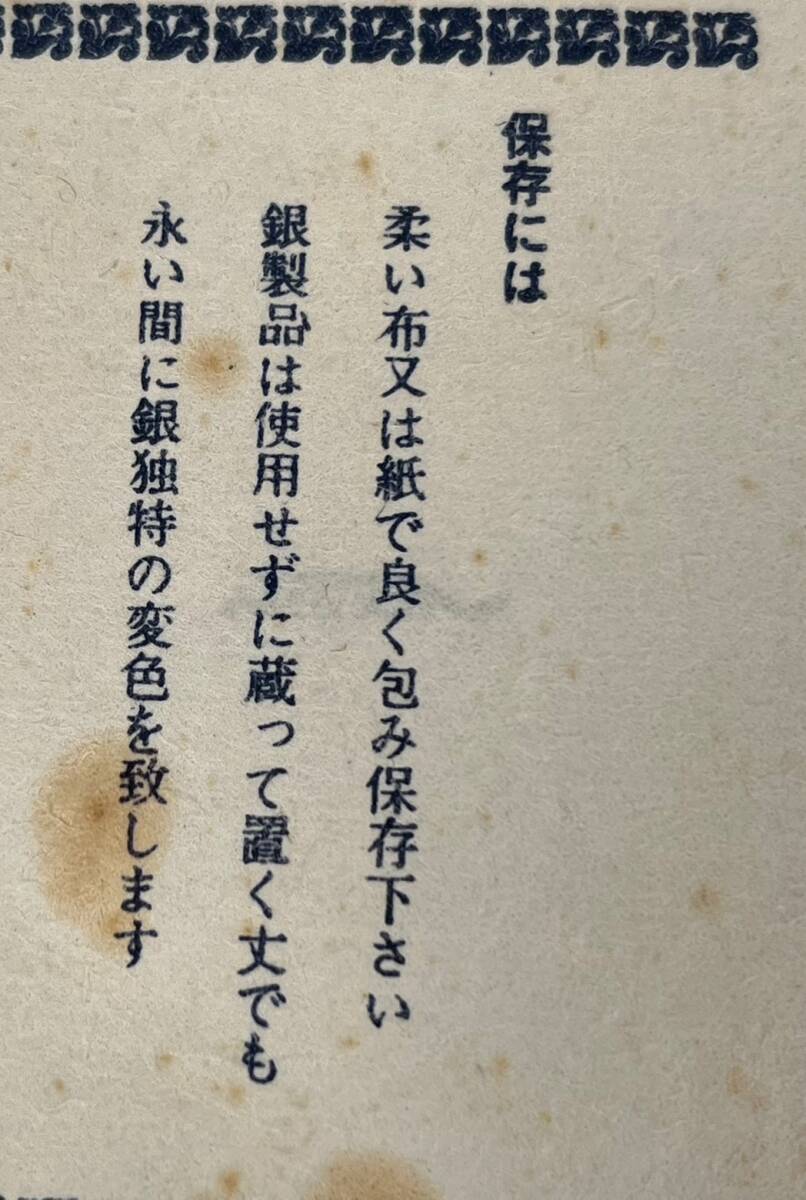 保存には
柔い布又は紙で良く包み保存下さい
銀製品は使用せずに蔵って置く丈でも
永い間に銀独特の変色を致します